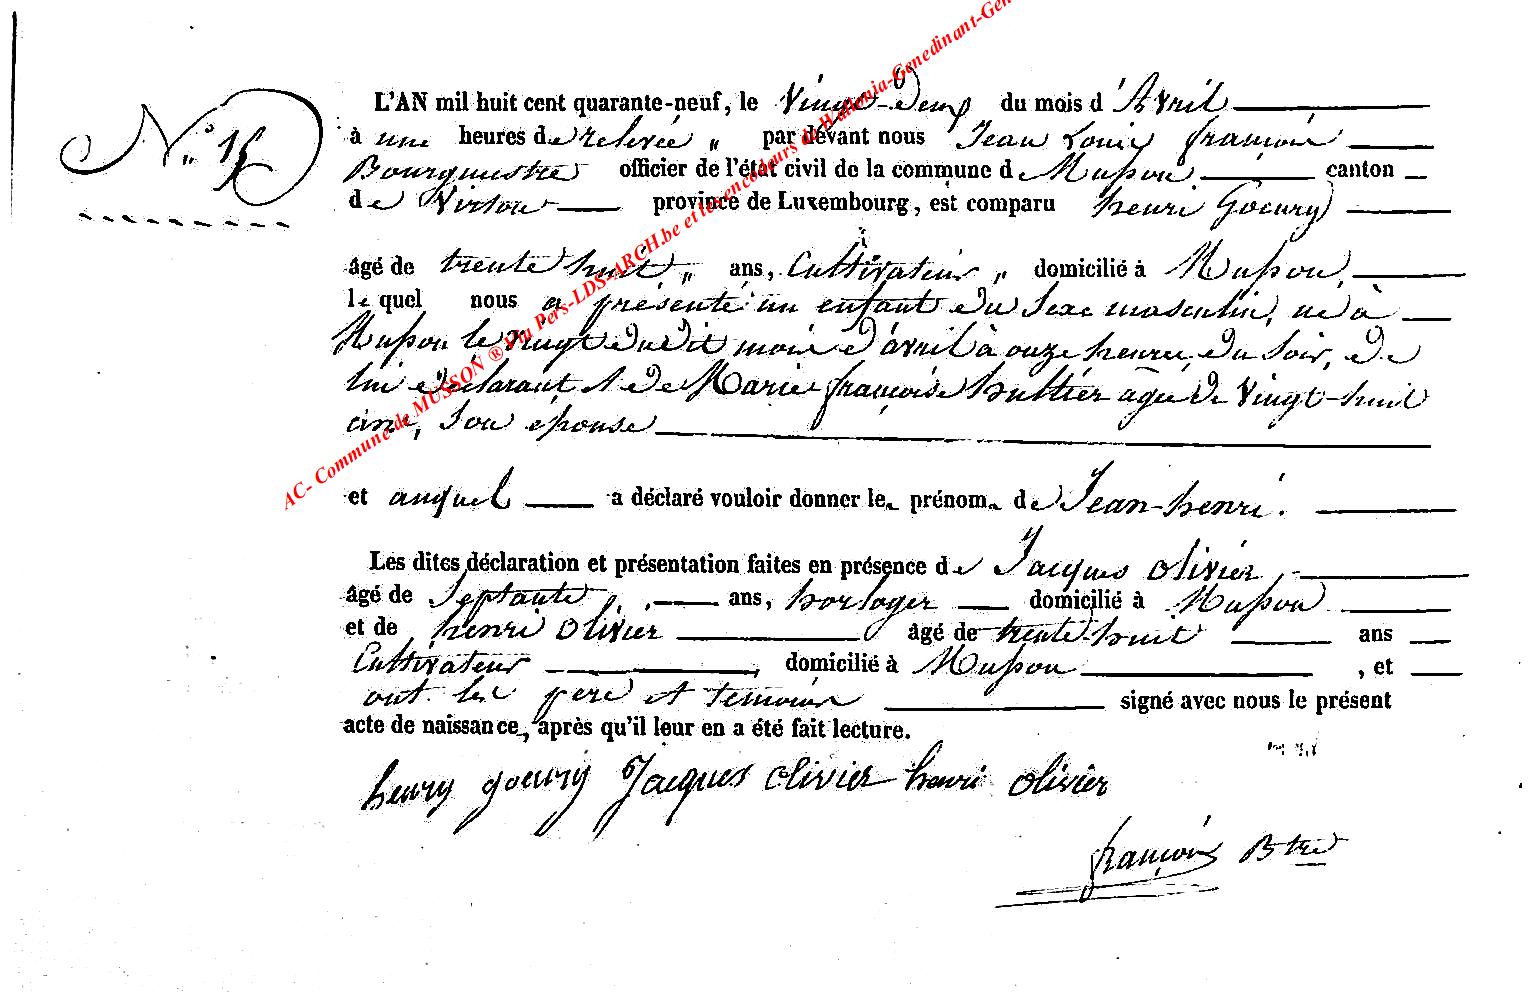 AC- Commune de MUSSON ® Via Pers-LDS-ARCH.be et les encodeurs de Hallonia-Genedinant-Gen
L'AN mil huit cent quarante-neuf, le Vingt-Deux du mois d'Avril
N.° 15
à une heures de relevée „ par devant nous Jean Louis françois
Bourgmestre officier de l'état civil de la commune de Musson canton
de Virton province de Luxembourg, est comparu henri Goeury
âgé de trente huit „ ans, Cultivateur „ domicilié à Musson,
lequel nous a présenté un enfant du sexe masculin, né à
Musson le vingt du dit mois d'avril à onze heures du soir, de
lui déclarant & de Marie françoise hultier agée de Vingt-huit
ans, son epouse
et auquel a déclaré vouloir donner le prénom de Jean-henri.
Les dites déclaration et présentation faites en présence de Jacques olivier,
âgé de Septante, ans, horloger domicilié à Musson
et de henri olivier âgé de trente huit ans
Cultivateur, domicilié à Musson, et
ont les pere et temoins signé avec nous le présent
acte de naissance, après qu'il leur en a été fait lecture.
henry goeury Jacques olivier henri olivier
françois Btre